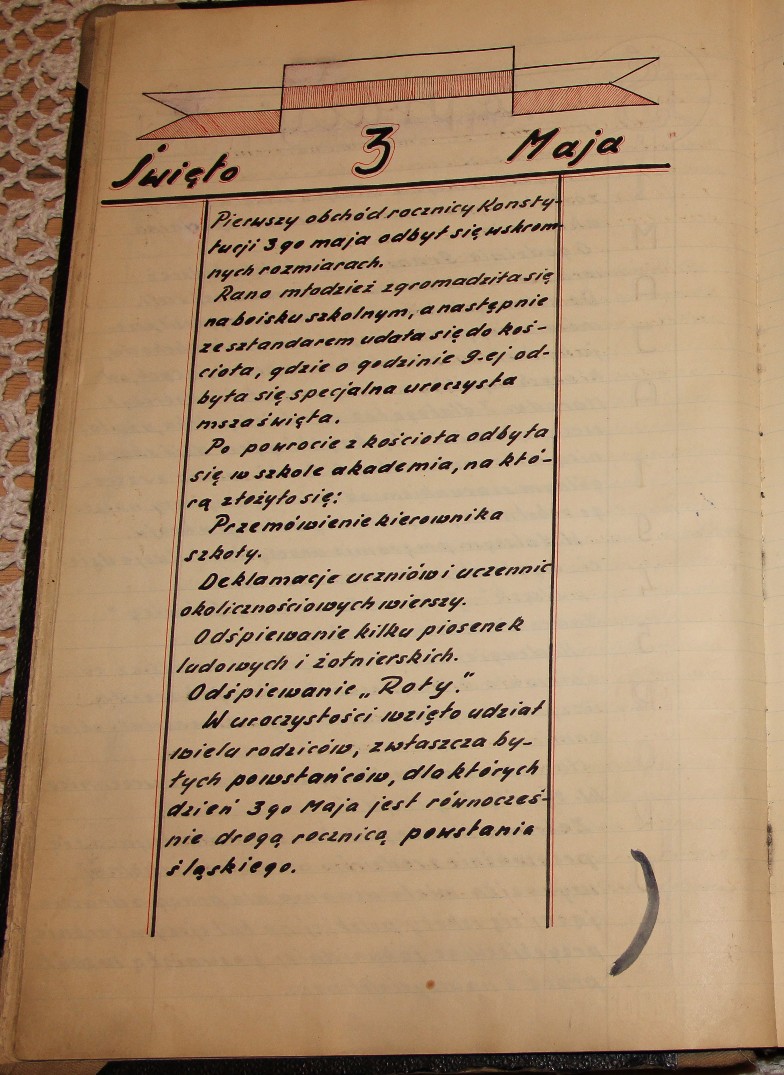 Święto 3 Maja
Pierwszy obchód rocznicy Konsty-
tucji 3go maja odbył się w skrom-
nych rozmiarach.
Rano młodzież zgromadziła się
na boisku szkolnym, a następnie
ze sztandarem udała się do koś-
cioła, gdzie o godzinie 9-ej od-
była się specjalna uroczysta
msza święta.
Po powrocie z kościoła odbyła
się w szkole akademia, na któ-
rą złożyło się:
Przemówienie kierownika
szkoły.
Deklamacje uczniów i uczennic
okolicznościowych wierszy.
Odśpiewanie kilku piosenek
ludowych i żołnierskich.
Odśpiewanie „Roty."
W uroczystości wzięło udział
wielu rodziców, zwłaszcza by-
łych powstańców, dla których
dzień 3go Maja jest równocześ-
nie drogą rocznicą powstania
śląskiego.